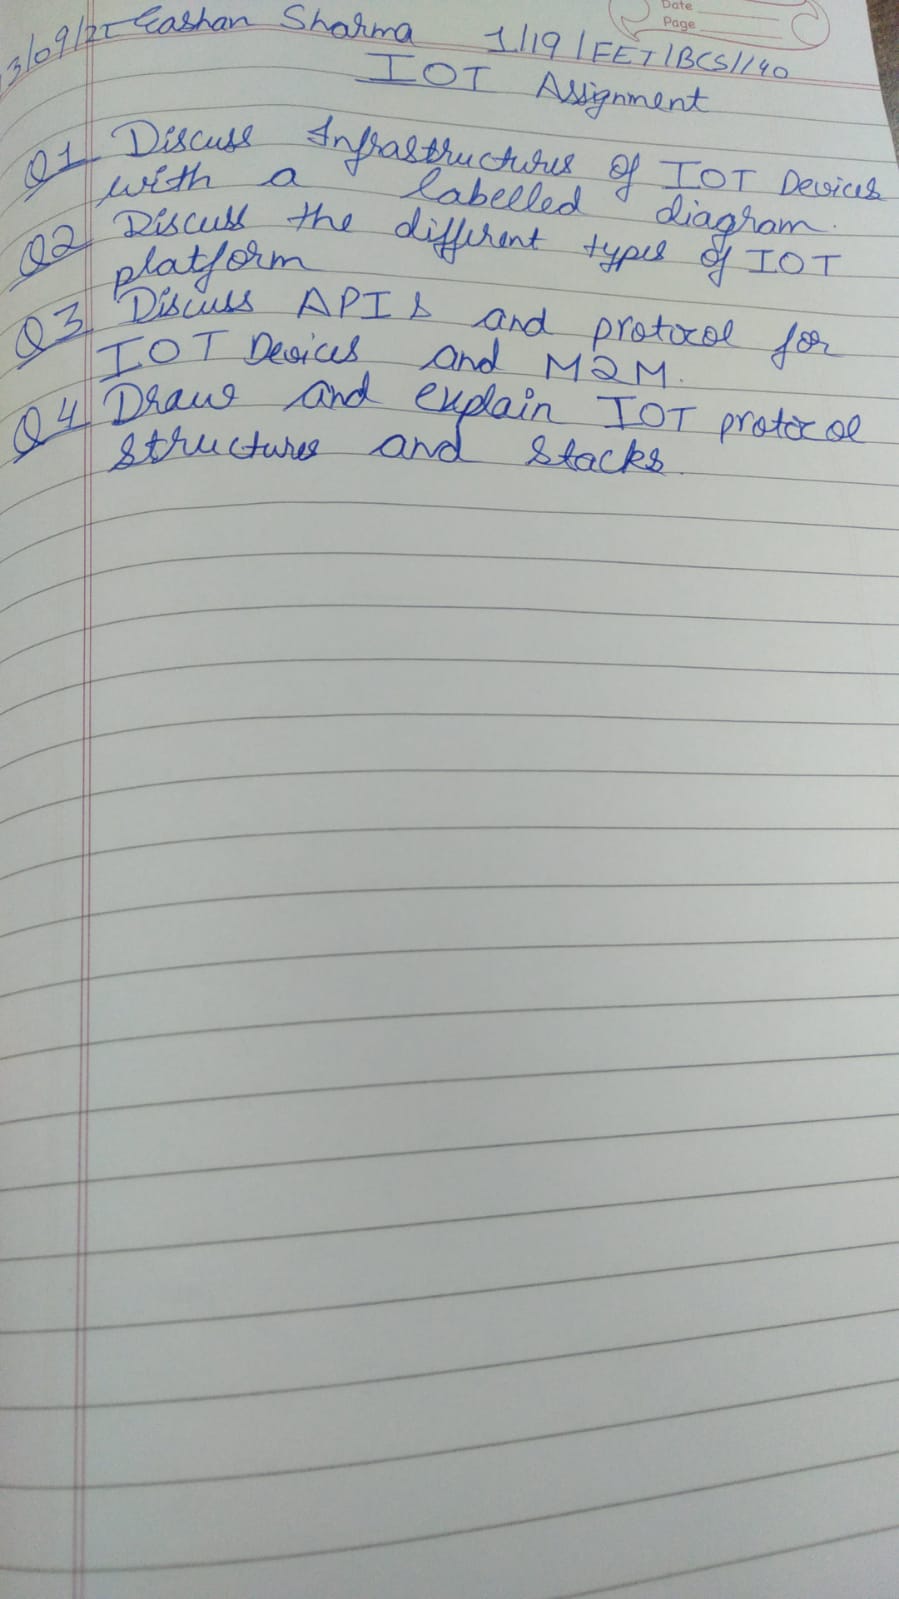 Date
Page
3/09/21 Eashan Sharma 1/19/FET/BCS/1/40
IOT Assignment
Q1 Discuss Infrastructures of IOT Devices
with a labelled diagram.
Q2 Discuss the different types of IOT
platform
Q3 Discuss APIs and protocol for
IOT Devices and M2M.
Q4 Draw and explain IOT protocol
structures and stacks.